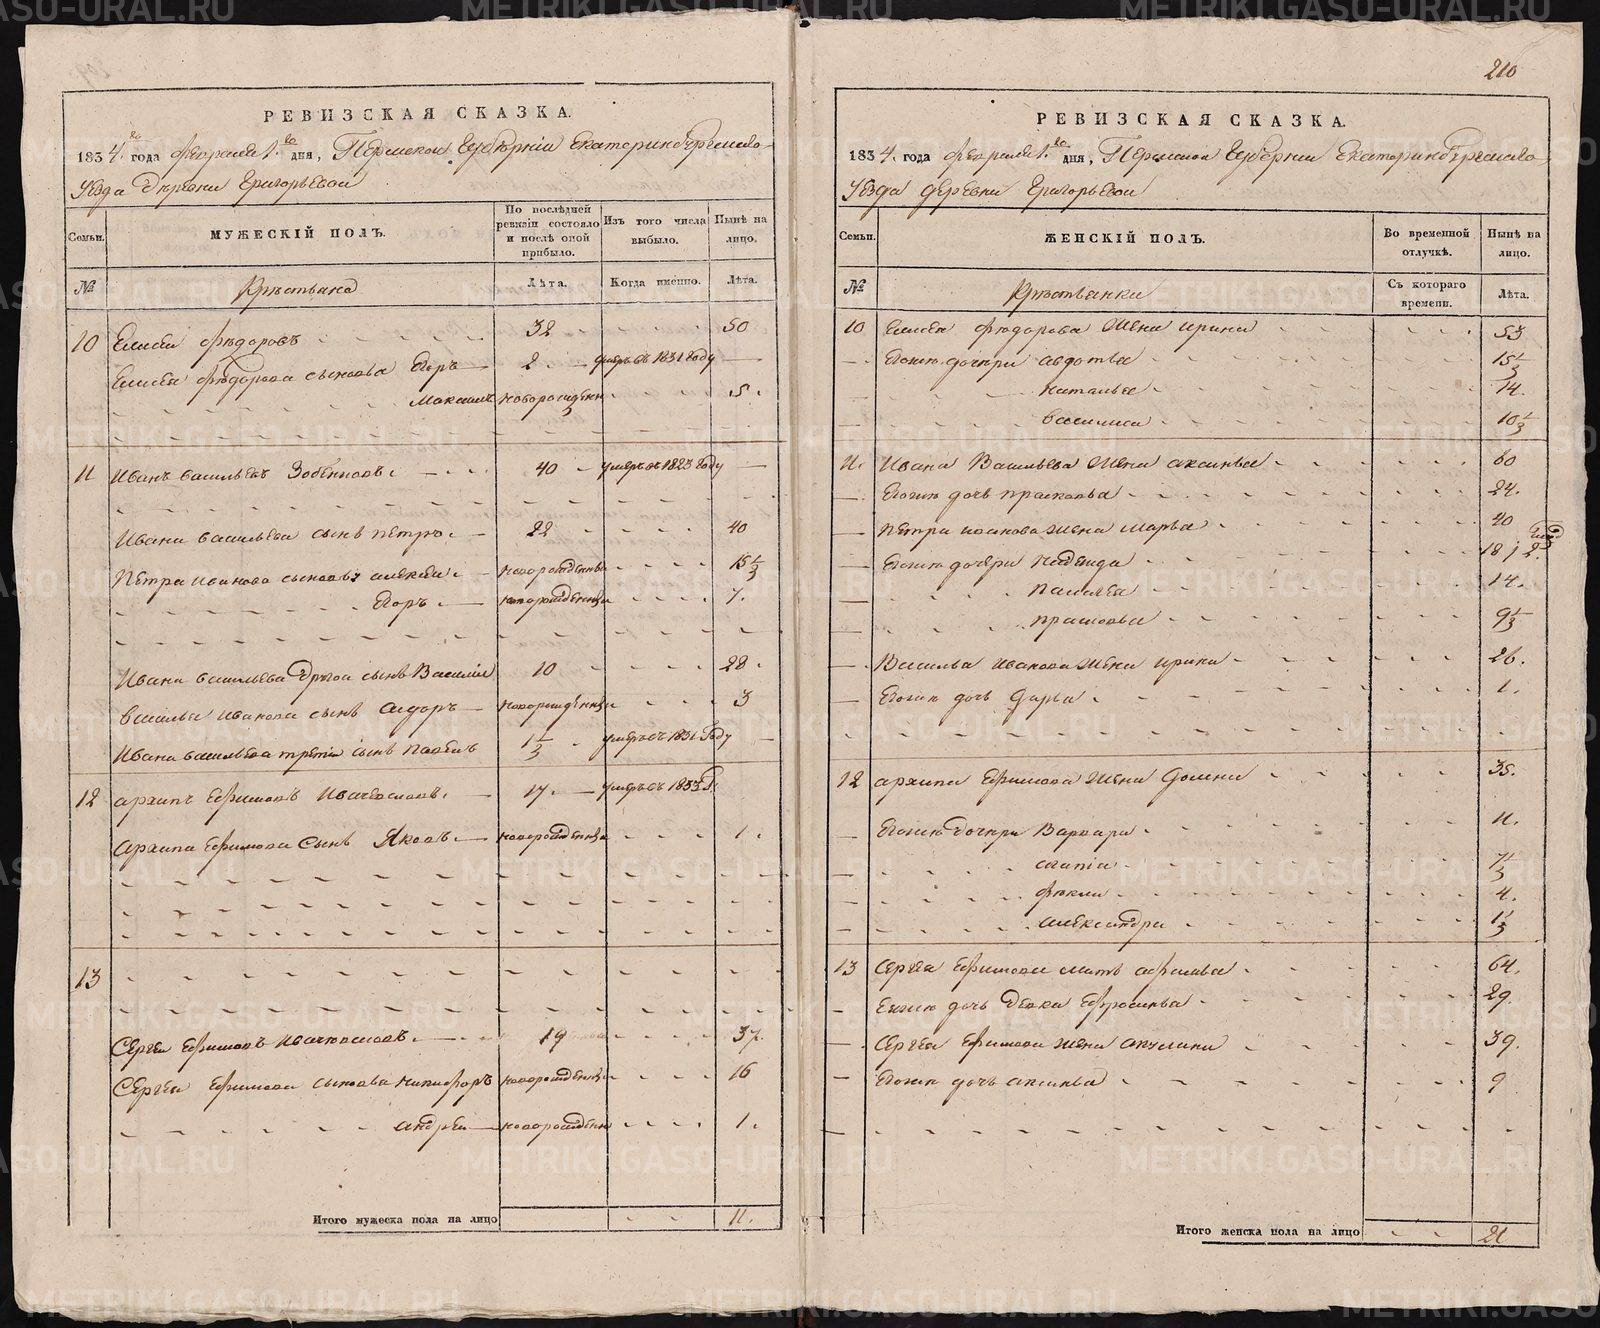 210
РЕВИЗСКАЯ СКАЗКА.
1834 го года февраля 1 го дня, Пермской Губернiи Екатеринбургскаго
Уезда Деревни Григорьевой
Семьи.
МУЖЕСКIЙ ПОЛЪ.
По послѣдней ревизiи состояло и послѣ оной прибыло.
Изъ того числа выбыло.
Нынѣ на лицо.
№
Крестьяне
Лѣта.
Когда именно.
Лѣта.
10 Елисей Федоровъ 32 50
Елисея Федорова сыновья Егоръ 2 умеръ въ 1831 году
Максимъ новорожденн 5.
11 Иванъ Васильевъ 40 умеръ въ 1823 году
Ивана Васильева сынъ Петръ. 22 40
Петра Иванова сыновья Алексей новорожденны 15 1/3
Егоръ. новорожденны 7.
Ивана Васильева другой сынъ Василiй 10 28.
Василья Иванова сынъ Сидоръ новорожденны 3
Ивана Васильева третiй сынъ Павелъ 1 1/3 умеръ въ 1831 году
12 Архипъ Ефимовъ 17. умеръ въ 1833 Г.
Архипа Ефимова Сынъ Яковъ. новорожденны 1.
13
Сергей Ефимовъ 19 37.
Сергея Ефимова сыновья Никифоръ новорожденны 16
Андрей новорожденн 1.
Итого мужеска пола на лицо 11.
РЕВИЗСКАЯ СКАЗКА.
1834. го года февраля 1. го дня, Пермской Губернiи Екатеринбургскаго
Уезда деревни Григорьевой
Семьи.
ЖЕНСКIЙ ПОЛЪ.
Во временной отлучкѣ.
Нынѣ на лицо.
№
Крестьянки
Съ котораго времени.
Лѣта.
10 Елисея Федорова Жена Ирина 53
Егоже дочери Авдотья 15 1/3
Наталья 14.
Василиса 10 1/3
11. Ивана Васильева Жена Аксинья 60
Егоже дочь Прасковья 24.
Петра Иванова Жена Марья 40
Егоже дочери Надежда 18 1/2.
14.
Прасковья 9 1/3
Василья Иванова Жена Ирина 26.
Егоже дочь Дарья 1.
12 Архипа Ефимова Жена Домна 35.
Егоже Дочери Варвара 11.
7 1/3
Фекла 4.
Александра 1 1/3
13 Сергея Ефимова мать 64.
Егоже дочь Девка Ефросинья 29
Сергея Ефимова Жена Акулина 39.
Егоже дочь Аксинья 9
Итого женска пола на лицо 21
METRIKI.GASO-URAL.RU